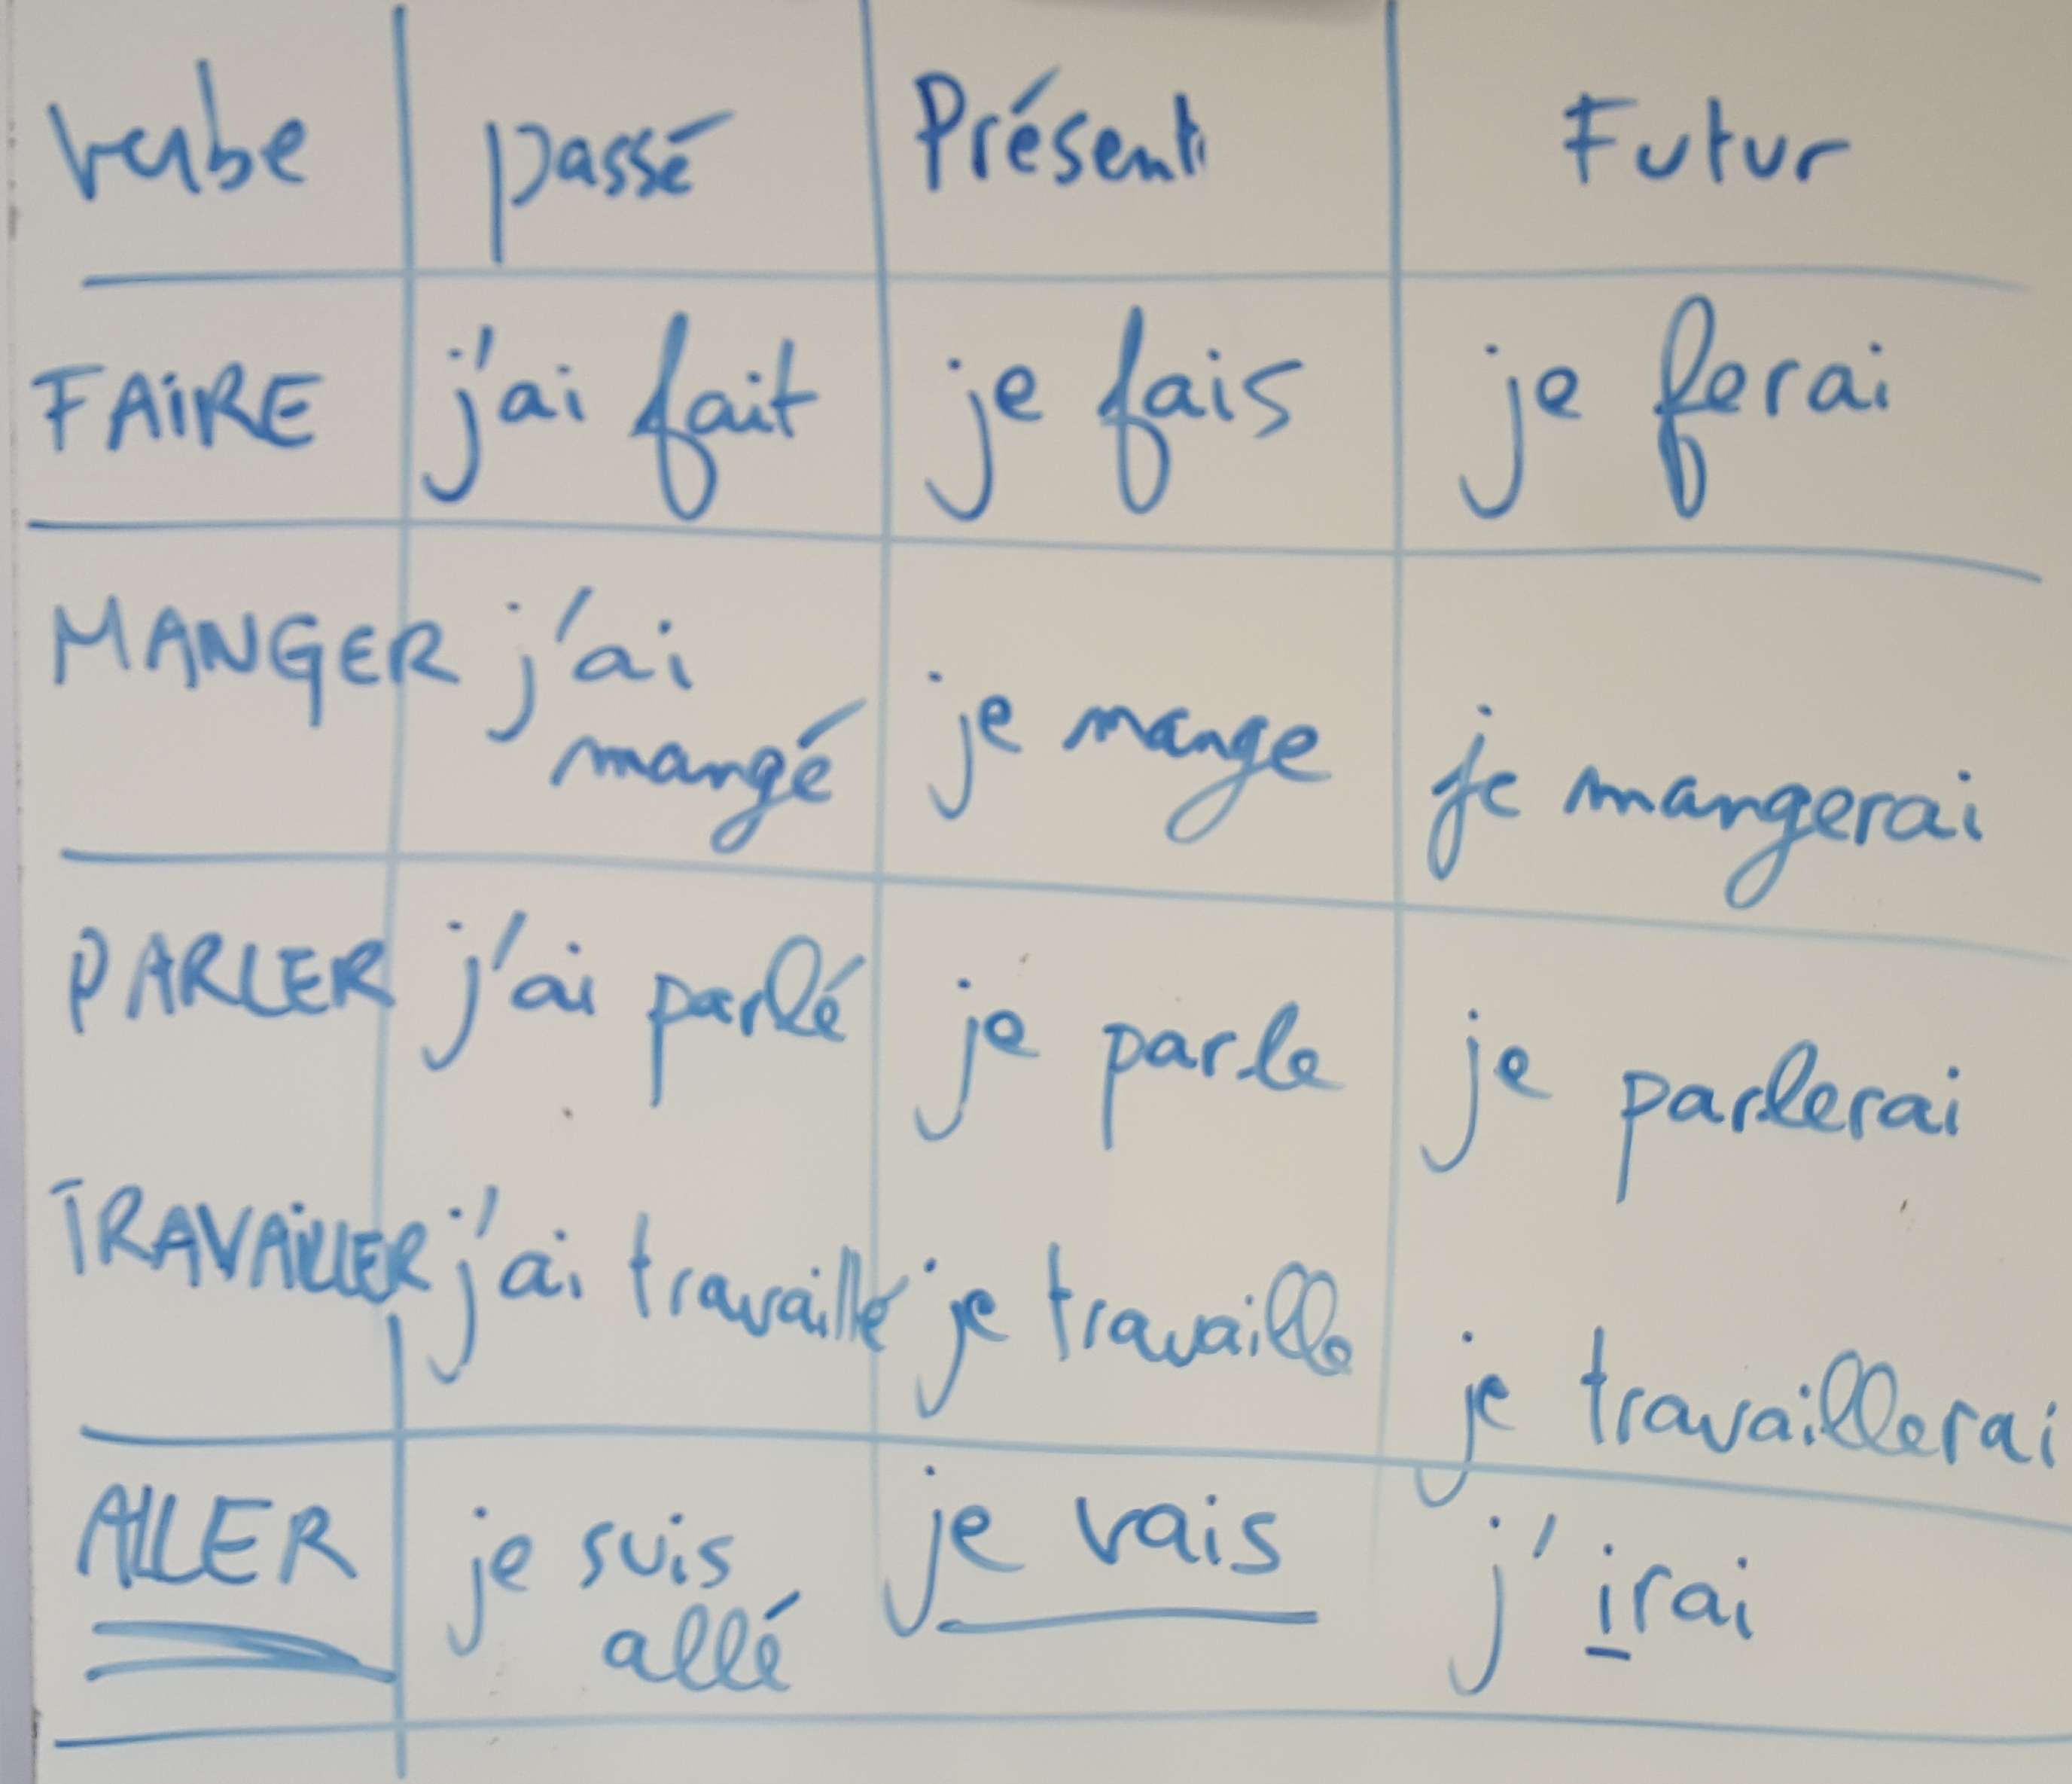 verbe passé Présent Futur
FAIRE j'ai fait je fais je ferai
MANGER j'ai mangé je mange je mangerai
PARLER j'ai parlé je parle je parlerai
TRAVAILLER j'ai travaillé je travaille je travaillerai
ALLER je suis allé je vais j'irai